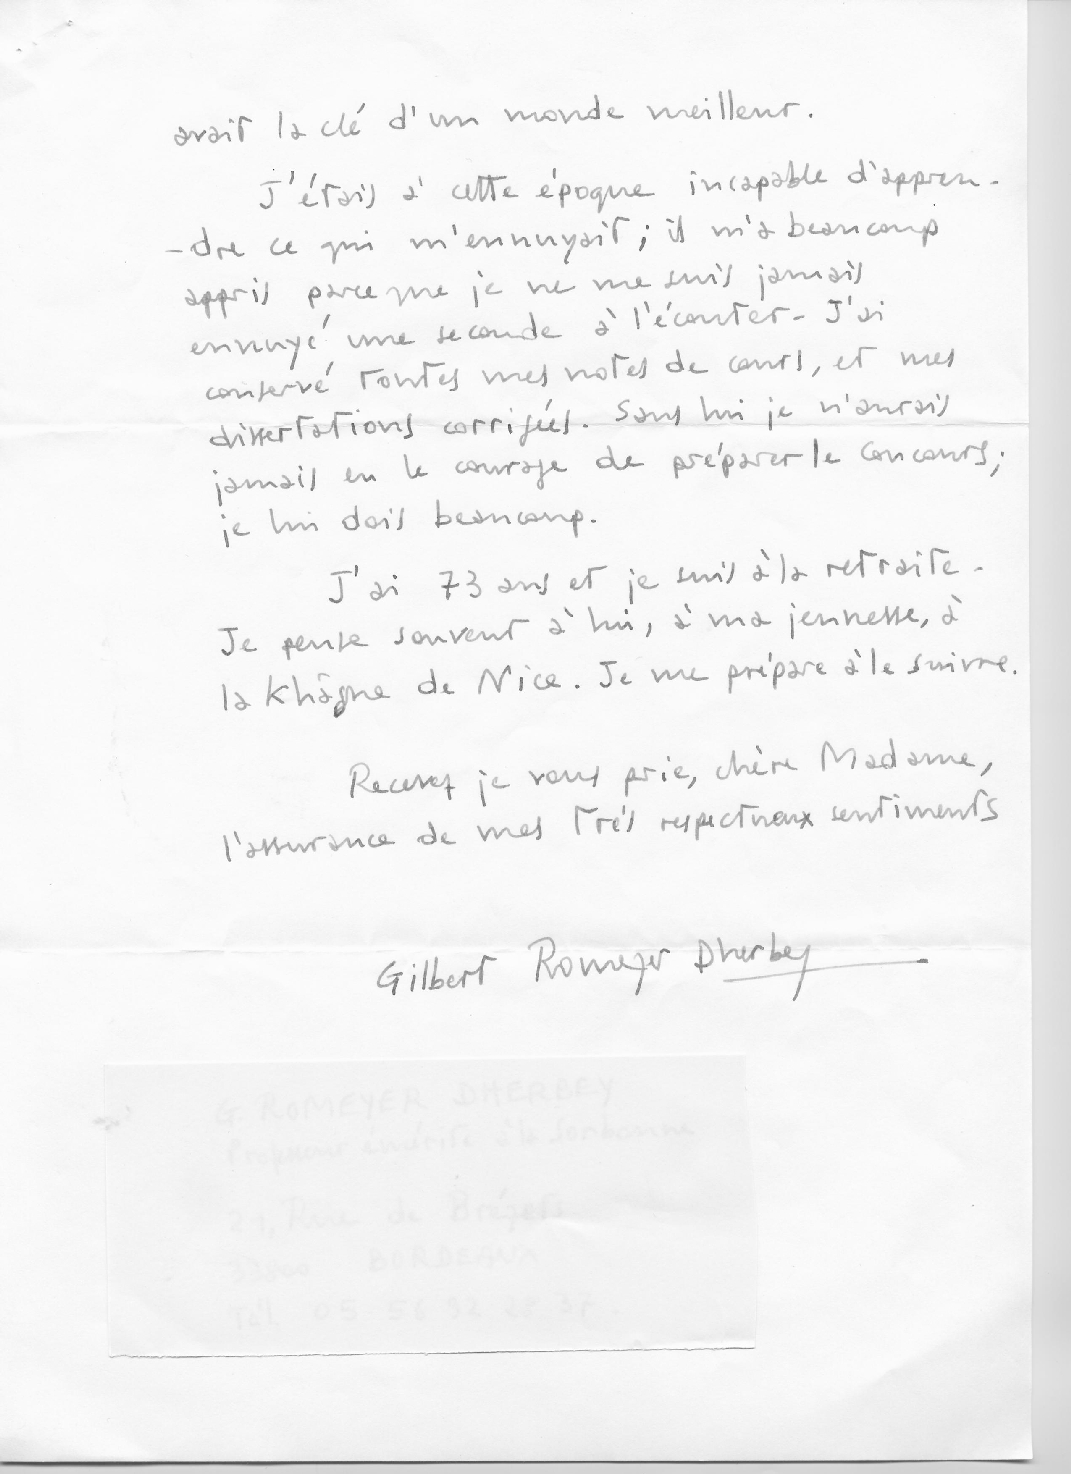 avait la clé d'un monde meilleur.
J'étais à cette époque incapable d'appren-
-dre ce qui m'ennuyait ; il m'a beaucoup
appris parce que je ne me suis jamais
ennuyé une seconde à l'écouter - J'ai
conservé toutes mes notes de cours, et mes
dissertations corrigées. Sans lui je n'aurais
jamais eu le courage de préparer le concours ;
je lui dois beaucoup.
J'ai 73 ans et je suis à la retraite -
Je pense souvent à lui, à ma jeunesse, à
la Khâgne de Nice. Je me prépare à le suivre.
Recevez je vous prie, chère Madame,
l'assurance de mes très respectueux sentiments
Gilbert Romeyer Dherbey
G. ROMEYER DHERBEY
Professeur émérite à la Sorbonne
Rue de
BORDEAUX
Tél 05 56 92